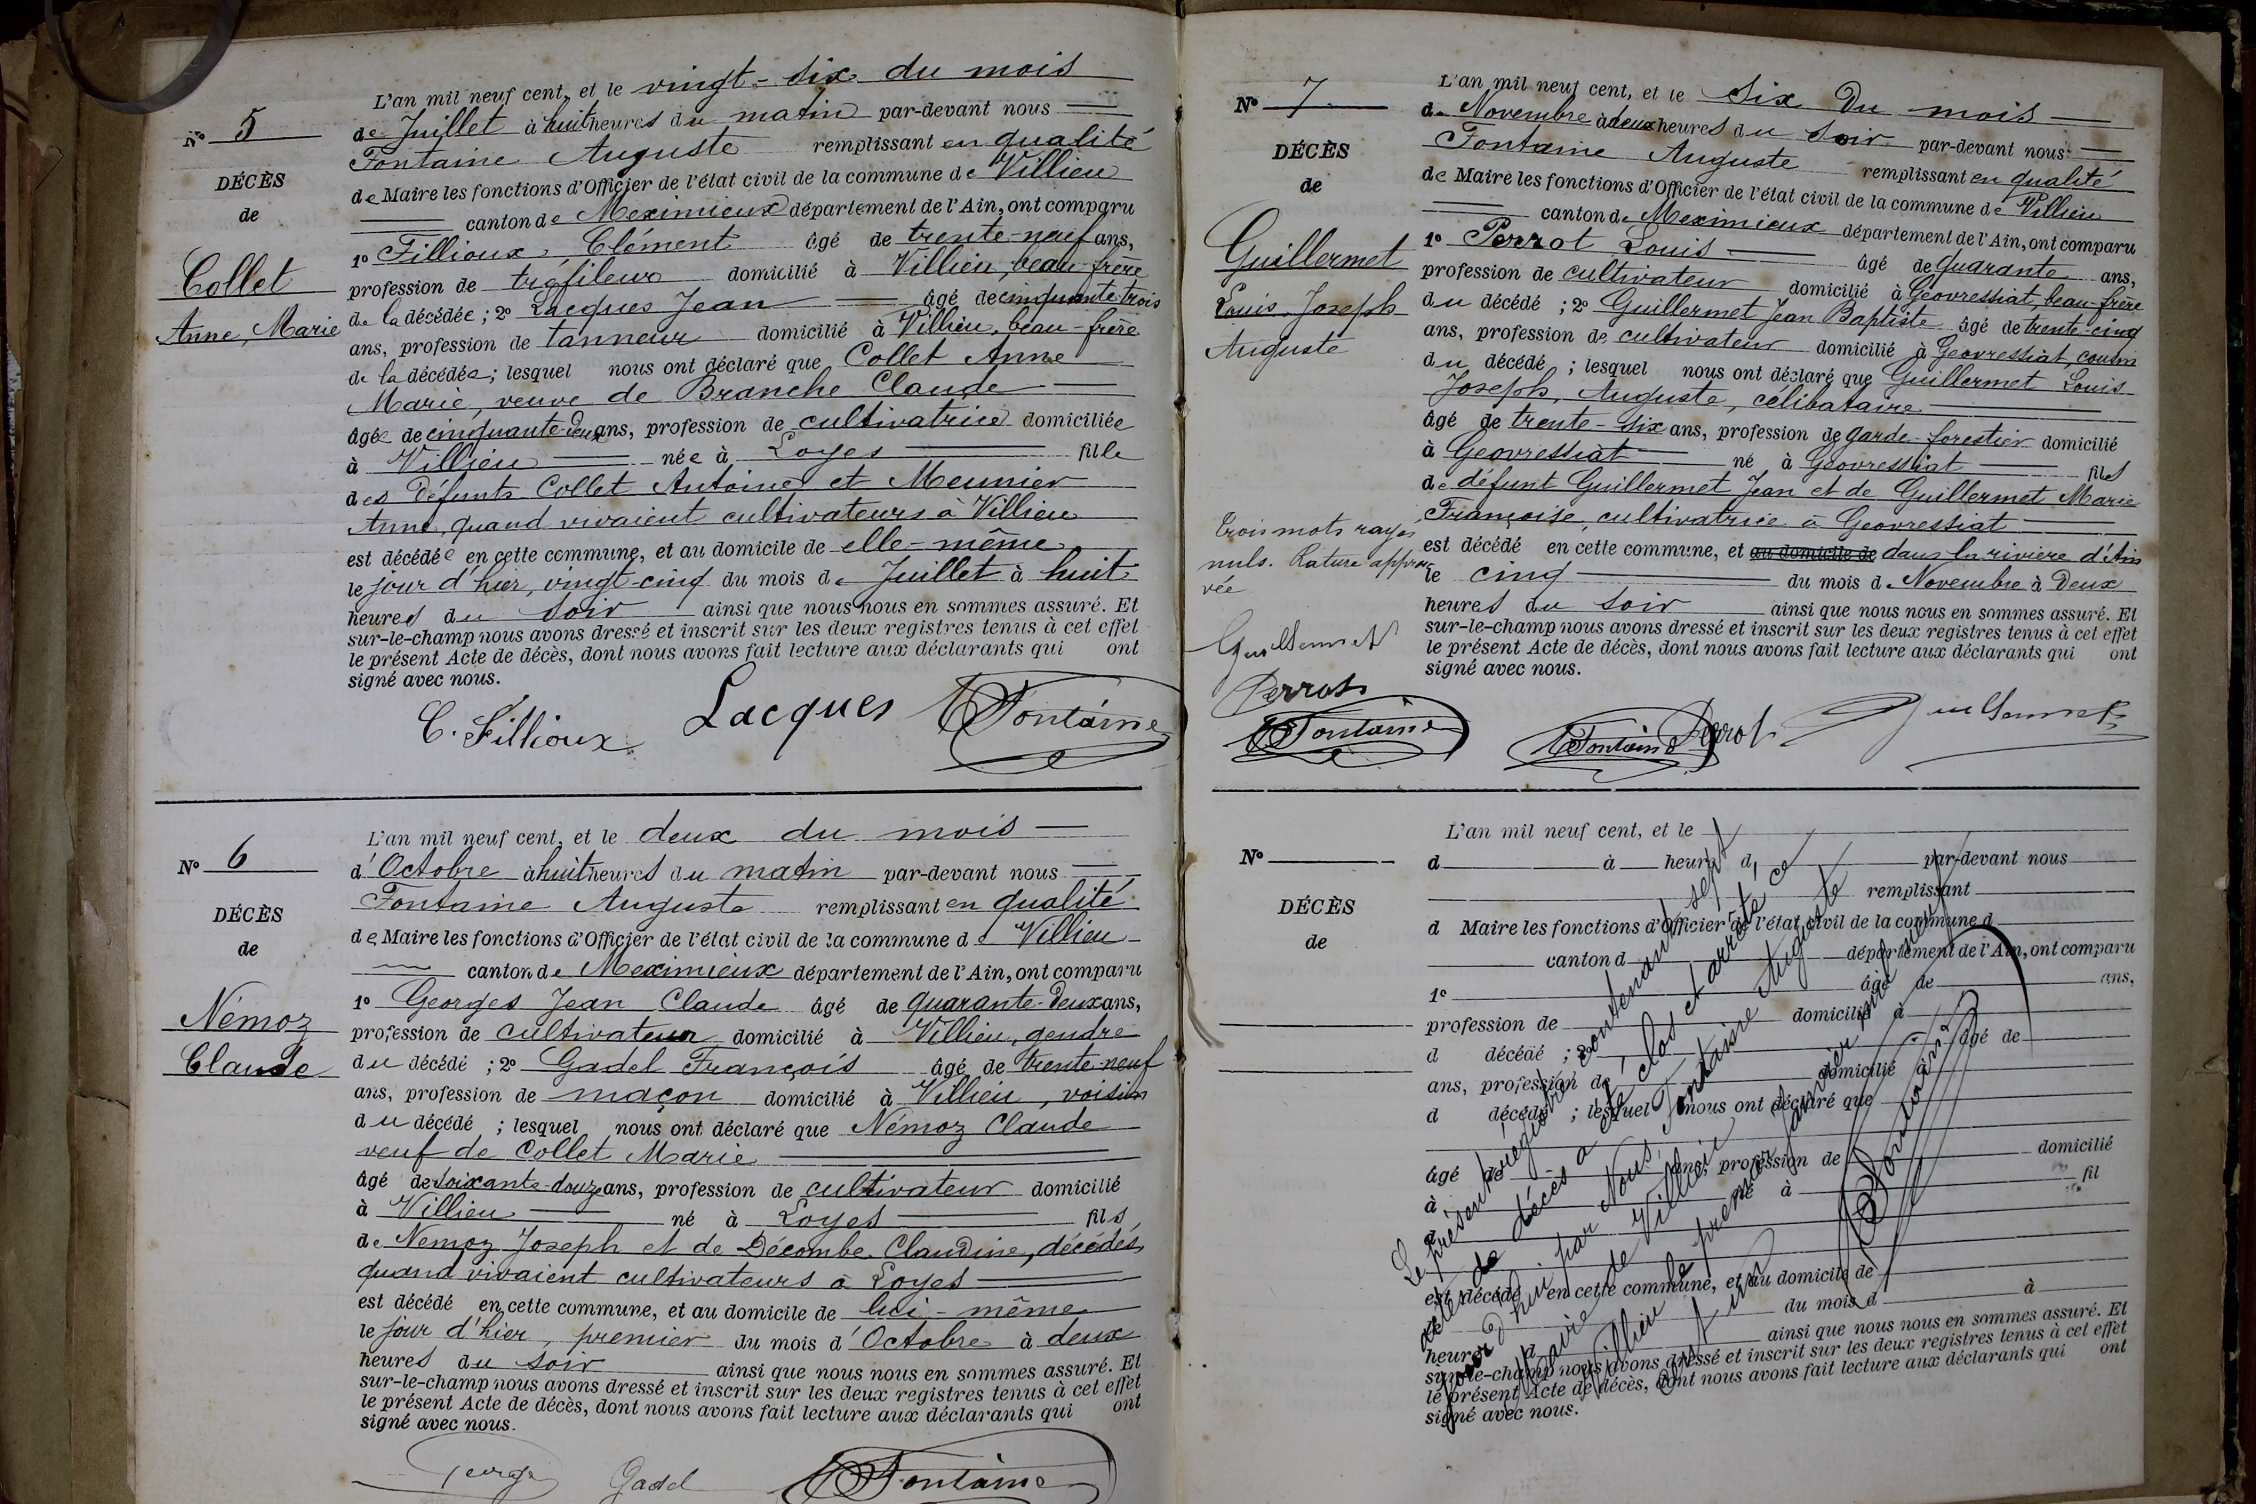 N° 5
DÉCÈS
de
Collet
Anne, Marie
L'an mil neuf cent, et le vingt-six du mois
de Juillet à huit heures du matin par-devant nous
Fontaine Auguste remplissant en qualité
de Maire les fonctions d'Officier de l'état civil de la commune de Villieu
canton de Meximieux département de l'Ain, ont comparu
1° Fillioux, Clément âgé de trente-neuf ans,
profession de tréfileur domicilié à Villieu, beau-frère
de la décédée ; 2° Lacques Jean âgé de cinquante trois
ans, profession de tanneur domicilié à Villieu, beau-frère
de la décédée ; lesquel nous ont déclaré que Collet Anne
Marie, veuve de Branche Claude
âgée de cinquante-deux ans, profession de cultivatrice domiciliée
à Villieu née à Loyes fille
des défunts Collet Antoine et Meunier
Anne, quand vivaient cultivateurs à Villieu
est décédée en cette commune, et au domicile de elle-même
le jour d'hier, vingt-cinq du mois de Juillet à huit
heures du soir ainsi que nous nous en sommes assuré. Et
sur-le-champ nous avons dressé et inscrit sur les deux registres tenus à cet effet
le présent Acte de décès, dont nous avons fait lecture aux déclarants qui ont
signé avec nous.
C. Fillioux Lacques Fontaine
N° 6
DÉCÈS
de
Némoz
Claude
L'an mil neuf cent, et le deux du mois
d'Octobre à huit heures du matin par-devant nous
Fontaine Auguste remplissant en qualité
de Maire les fonctions d'Officier de l'état civil de la commune de Villieu
canton de Meximieux département de l'Ain, ont comparu
1° Georges Jean Claude âgé de quarante-deux ans,
profession de cultivateur domicilié à Villieu, gendre
du décédé ; 2° Gadel François âgé de trente-neuf
ans, profession de maçon domicilié à Villieu, voisin
du décédé ; lesquel nous ont déclaré que Némoz Claude
veuf de Collet Marie
âgé de soixante-douze ans, profession de cultivateur domicilié
à Villieu né à Loyes fils
de Nemoz Joseph et de Décombe Claudine, décédés,
quand vivaient cultivateurs à Loyes
est décédé en cette commune, et au domicile de lui-même
le jour d'hier, premier du mois d'Octobre à deux
heures du soir ainsi que nous nous en sommes assuré. Et
sur-le-champ nous avons dressé et inscrit sur les deux registres tenus à cet effet
le présent Acte de décès, dont nous avons fait lecture aux déclarants qui ont
signé avec nous.
George Gadel Fontaine
N° 7
DÉCÈS
de
Guillermet
Louis, Joseph
Auguste
L'an mil neuf cent, et le Six du mois
de Novembre à deux heures du soir par-devant nous
Fontaine Auguste remplissant en qualité
de Maire les fonctions d'Officier de l'état civil de la commune de Villieu
canton de Meximieux département de l'Ain, ont comparu
1° Perrot Louis âgé de quarante ans,
profession de cultivateur domicilié à Geovressiat, beau-frère
du décédé ; 2° Guillermet Jean Baptiste âgé de trente-cinq
ans, profession de cultivateur domicilié à Geovressiat, cousin
du décédé ; lesquel nous ont déclaré que Guillermet Louis
Joseph, Auguste, célibataire
âgé de trente-six ans, profession de garde-forestier domicilié
à Geovressiat né à Geovressiat fils
de défunt Guillermet Jean et de Guillermet Marie
Françoise, cultivatrice à Geovressiat
est décédé en cette commune, et au domicile de dans la rivière d'Ain
le cinq du mois de Novembre à deux
heures du soir ainsi que nous nous en sommes assuré. Et
sur-le-champ nous avons dressé et inscrit sur les deux registres tenus à cet effet
le présent Acte de décès, dont nous avons fait lecture aux déclarants qui ont
signé avec nous.
Trois mots rayés
nuls. Rature approu-
vée
Guillermet
Perrot
Fontaine
Fontaine Perrot Guillermet
N°
DÉCÈS
de
L'an mil neuf cent, et le
d à heure d par-devant nous
remplissant
d Maire les fonctions d'Officier de l'état civil de la commune d
canton d département de l'Ain, ont comparu
1° âgé de ans,
profession de domicilié à
d décédé ; 2° âgé de
ans, profession de domicilié à
d décédé ; lesquel nous ont déclaré que
âgé de ans, profession de domicilié
à né à fil
d
est décédé en cette commune, et au domicile de
le du mois d à
heure d ainsi que nous nous en sommes assuré. Et
sur-le-champ nous avons dressé et inscrit sur les deux registres tenus à cet effet
le présent Acte de décès, dont nous avons fait lecture aux déclarants qui ont
signé avec nous.
Le présent registre contenant sept
actes de décès a été clos et arrêté, ce
jourd'hui par Nous, Fontaine Auguste
Maire de Villieu
Villieu le premier janvier mil neuf
cent un
Fontaine